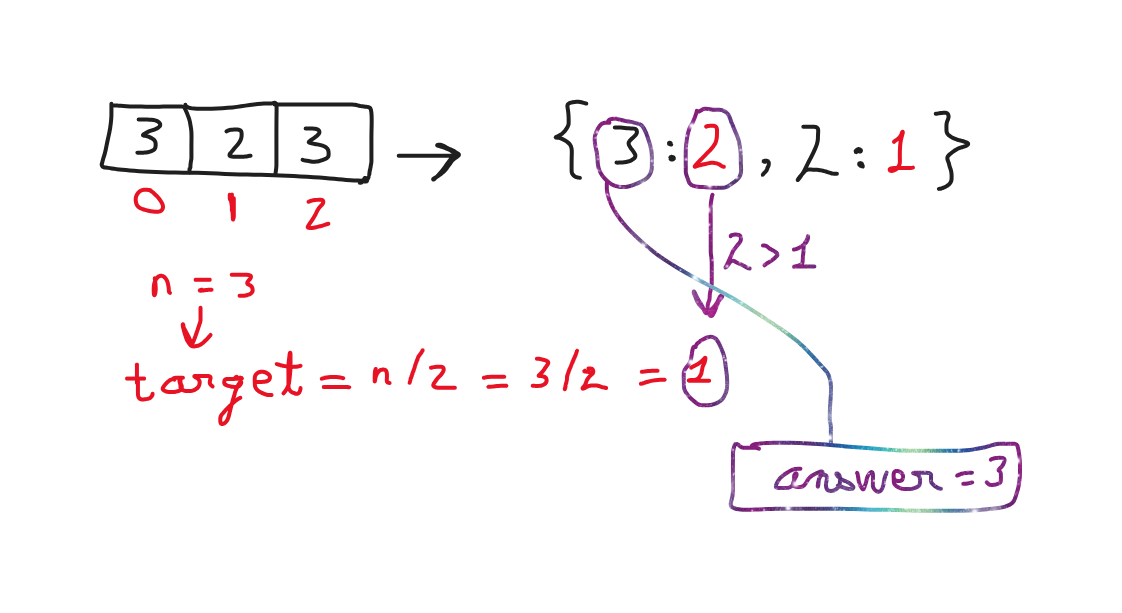 3 2 3 → {3:2, 2:1}
0 1 2
2>1
n = 3
target = n/2 = 3/2 = 1
answer = 3